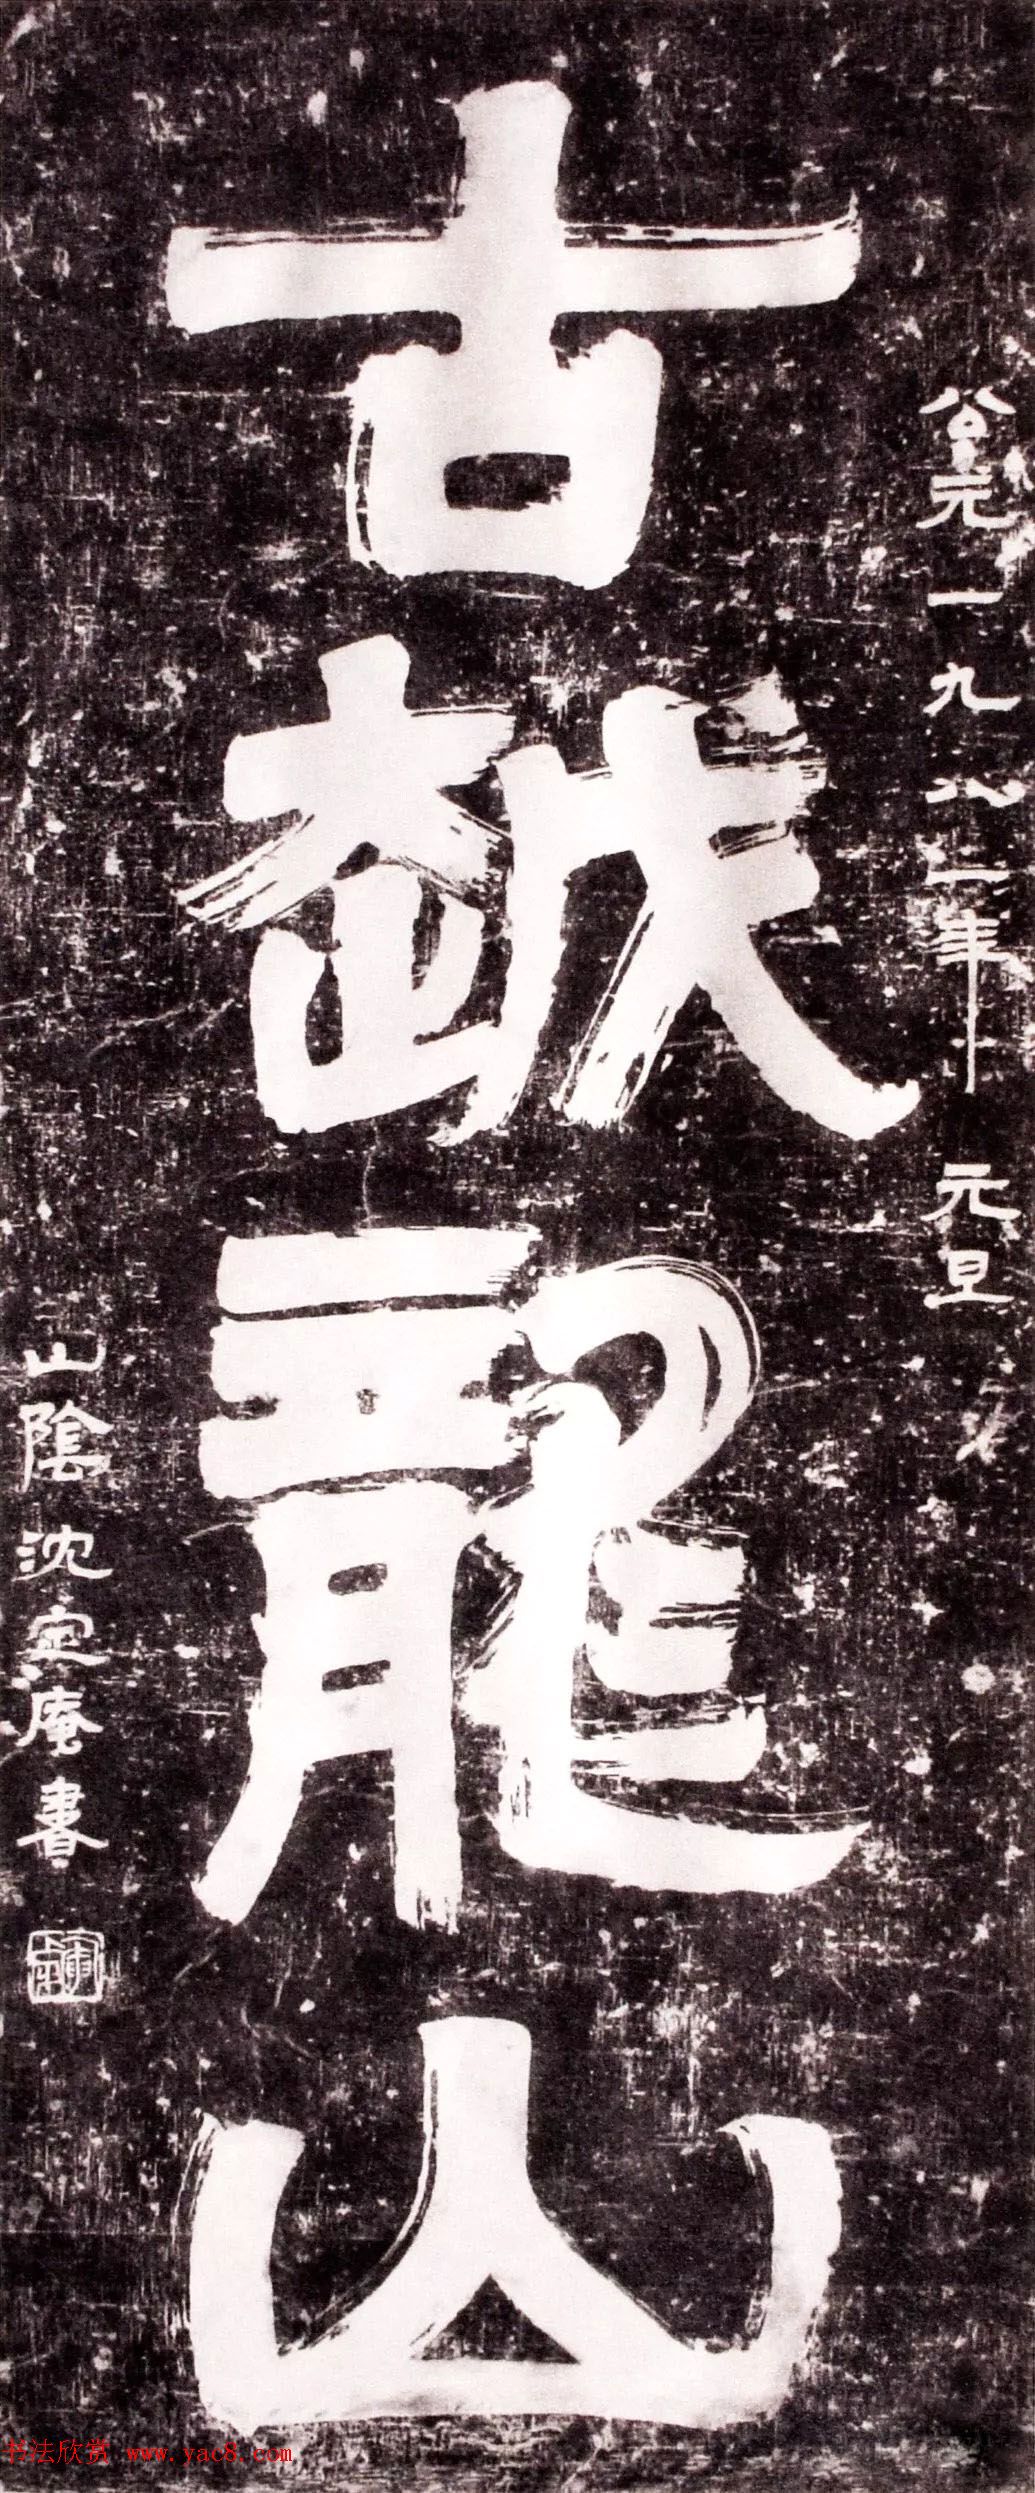 公元一九八二年 元旦
古越龍山
山陰沈定庵書
书法欣赏 www.yac8.com